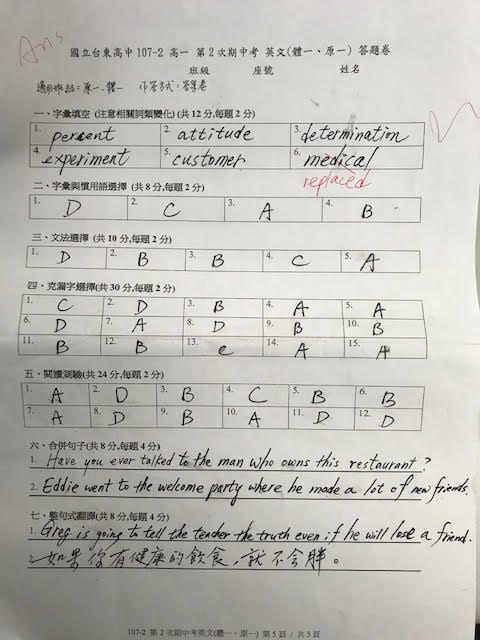 Ans
國立台東高中 107-2 高一 第 2 次期中考 英文(體一、原一) 答題卷
班級 座號 姓名
適用班級：原一、體一 作答方式：答案卷
一、字彙填空 (注意相關詞類變化) (共 12 分,每題 2 分)
1. percent 2. attitude 3. determination
4. experiment 5. customer 6. medical
replaced
二、字彙與慣用語選擇 (共 8 分,每題 2 分)
1. D 2. C 3. A 4. B
三、文法選擇 (共 10 分,每題 2 分)
1. D 2. B 3. B 4. C 5. A
四、克漏字選擇(共 30 分,每題 2 分)
1. C 2. D 3. B 4. A 5. A
6. D 7. A 8. D 9. B 10. B
11. B 12. B 13. c 14. A 15. A
五、閱讀測驗(共 24 分,每題 2 分)
1. A 2. D 3. B 4. C 5. B 6. B
7. A 8. D 9. B 10. A 11. D 12. D
六、合併句子(共 8 分,每題 4 分)
1. Have you ever talked to the man who owns this restaurant?
2. Eddie went to the welcome party where he made a lot of new friends.
七、整句式翻譯(共 8 分,每題 4 分)
1. Greg is going to tell the teacher the truth even if he will lose a friend.
2. 如果你有健康的飲食，就不會胖。
107-2 第 2 次期中考英文(體一、原一) 第 5 頁 / 共 5 頁